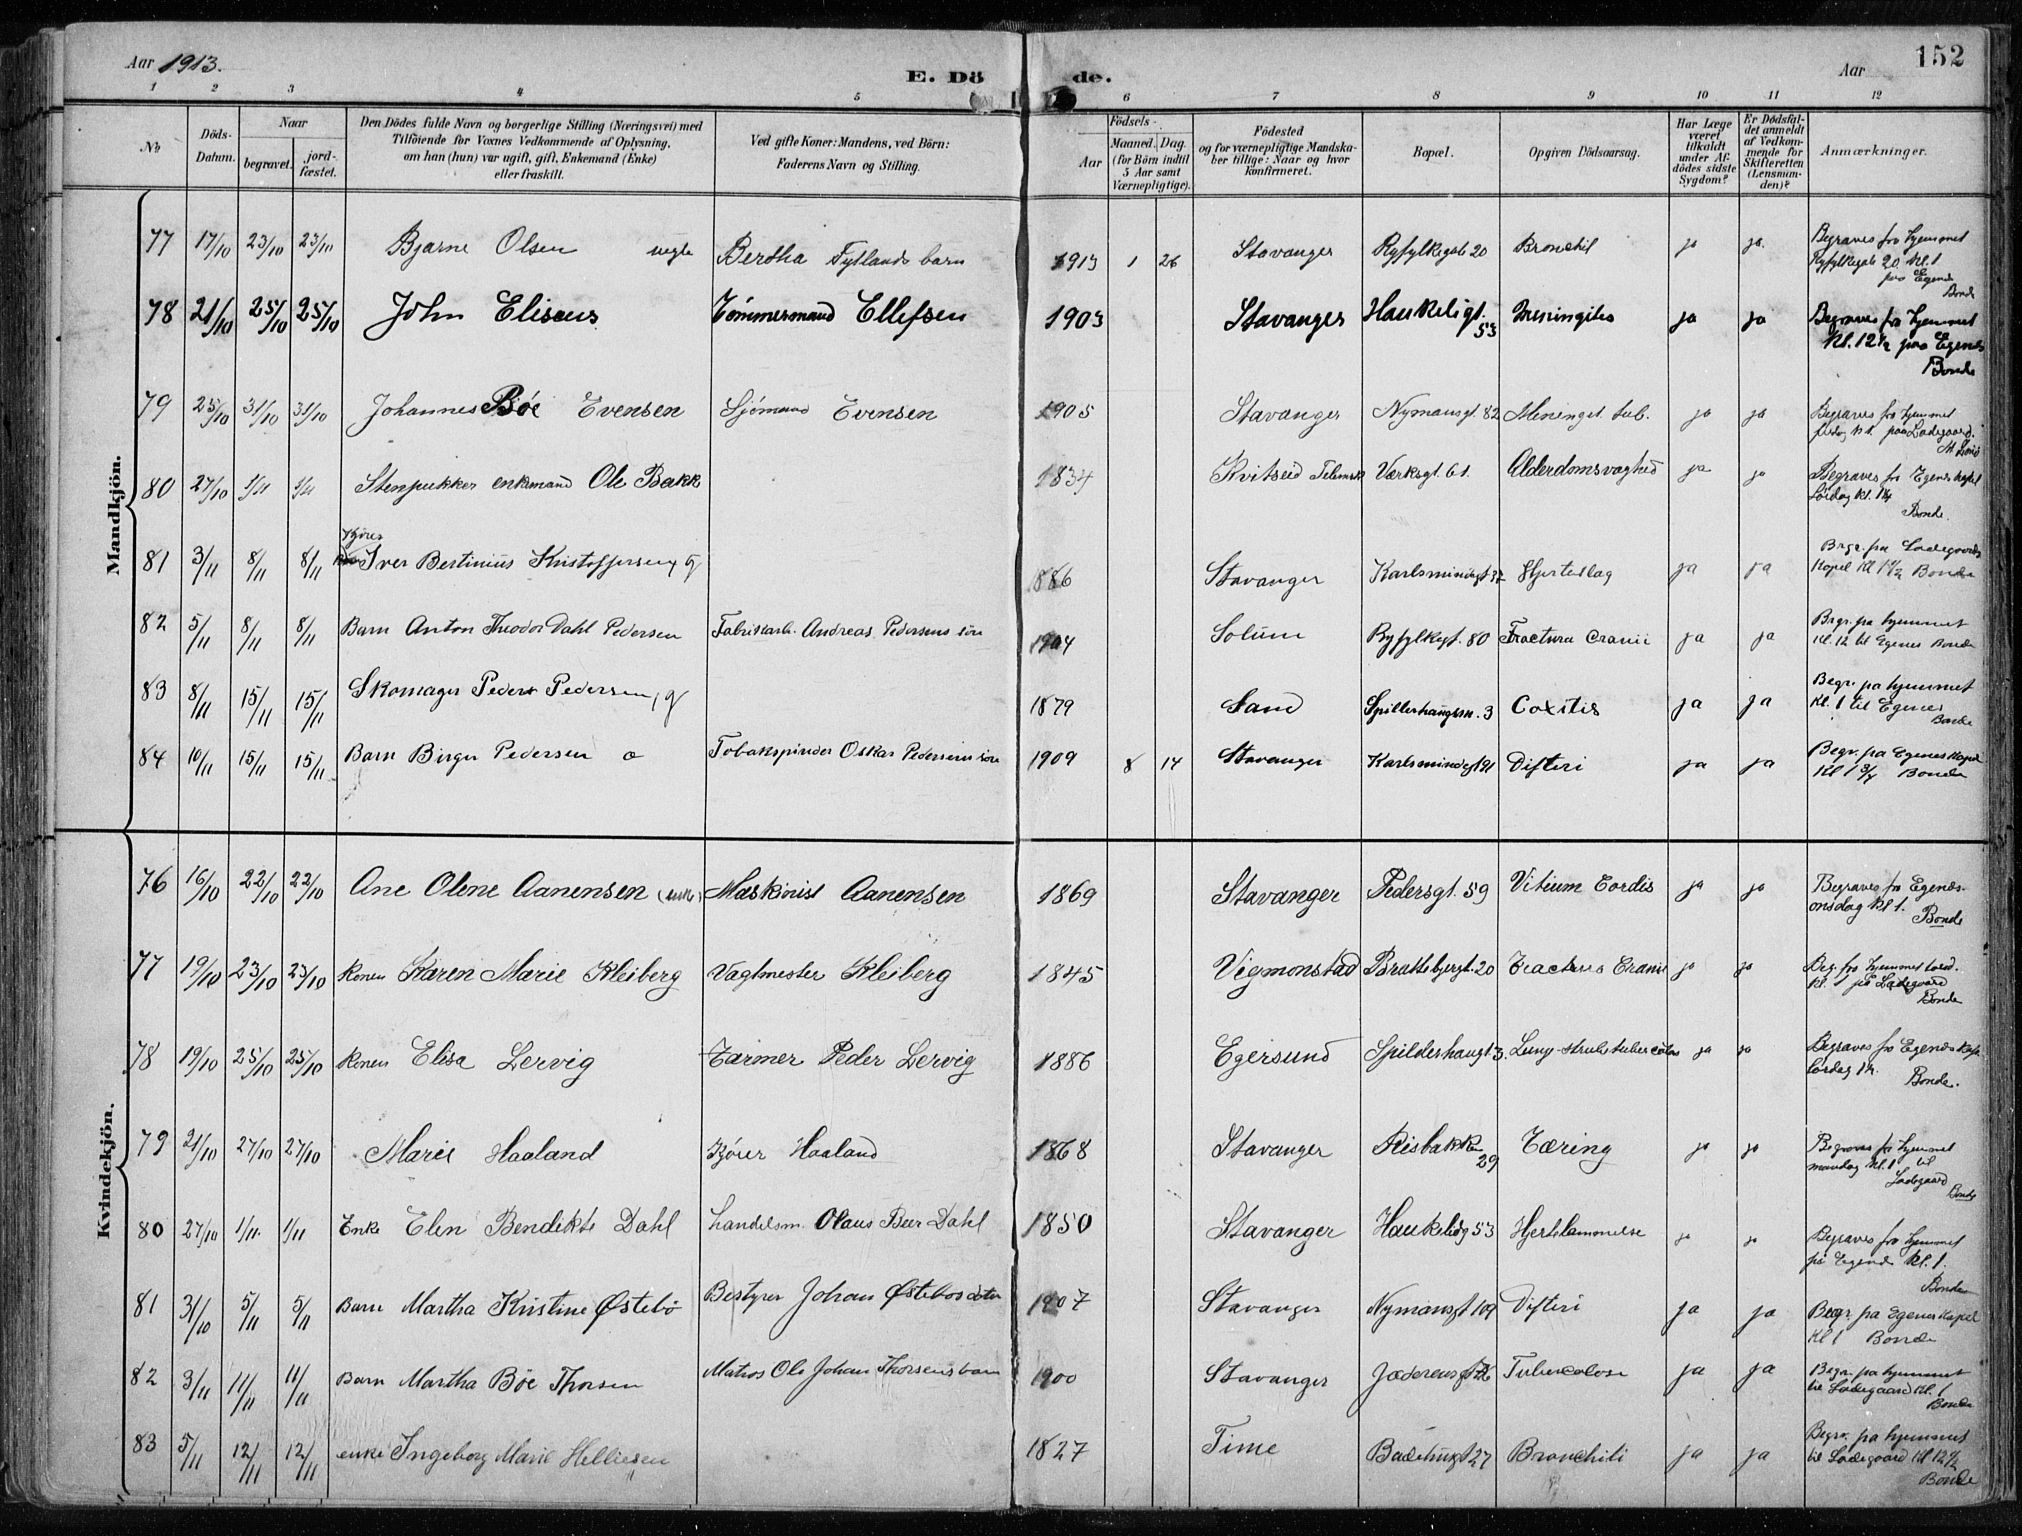 Aar 1913.
E. Dö de.
Aar
152
1 2 3 4 5 6 7 8 9 10 11 12
№
Döds-Datum.
Naar
begravet.
jord-fæstet.
Den Dödes fulde Navn og borgerlige Stilling (Næringsvei) med
Tilföiende for Voxnes Vedkommende af Oplysning,
om han (hun) var ugift, gift, Enkemand (Enke)
eller fraskilt.
Ved gifte Koner: Mandens, ved Börn:
Faderens Navn og Stilling.
Födsels-
Aar
Maaned. Dag.
(for Börn indtil
5 Aar samt
Værnepligtige).
Födested
og for værnepligtige Mandska-
ber tillige: Naar og hvor
konfirmeret.
Bopæl.
Opgiven Dödsaarsag.
Har Læge
været
tilkaldt
under Af-
dödes sidste
Sygdom?
Er Dödsfal-
det anmeldt
af Vedkom-
mende for
Skifteretten
(Lensman-
den)?
Anmærkninger.
Mandkjön.
77 17/10 23/10 23/10 Bjarne Olsen uegte Bertha Fytlands barn 1913 1 26 Stavanger Ryfylkegate 20 Bronchit ja ja Begraves fra hjemmet
Ryfylkegate 20 kl. 1
paa Egenes
Bonde
78 21/10 25/10 25/10 John Eliseus Tømmermand Ellefsen 1903 Stavanger Haukeligt. 53 Meningites ja ja Begraves fra hjemmet
kl. 12½ paa Egenes
Bonde
79 25/10 31/10 31/10 Johannes Bøe Evensen Sjømand Evensen 1905 Stavanger Nymansgt. 82 Meninget. tub. ja ja Begraves fra hjemmet
fredag kl. paa Ladegaard.
80 27/10 1/11 1/11 Stenpukker enkemand Ole Bakk 1834 Kvitseid Telemark Værksgt. 61. Alderdomsvaghed ja ja Begraves fra Egenes kapel
Lördag kl.
Bonde.
81 3/11 8/11 8/11 Kjøres Iver Bertinius Kristoffersen, g 1886 Stavanger Karlsmindegt 32 Hjerteslag ja ja Begr. fra Ladegaards
kapel kl 1½ Bonde
82 5/11 8/11 8/11 Barn Anton Theodor Dahl Pedersen Fabrikarb. Andreas Pedersens sön 1904 Solum Ryfylkegt. 80 Fractura Cranii ja ja Begr. fra hjemmet
kl. 12 til Egenes Bonde
83 8/11 15/11 15/11 Skomager Peder Pedersen, g 1879 Sand Spilderhaugsm. 3 Coxitis ja ja Begr. fra hjemmet
kl. 1 til Egenes
Bonde
84 10/11 15/11 15/11 Barn Birger Pedersen Tobakspinder Oskar Pedersens sön 1909 8 14 Stavanger Karlsmindegt 91 Difteri ja ja Begr. fra Egenes kapel
kl 1 3/4 Bonde
Kvindekjön.
76 16/10 22/10 22/10 Ane Olene Aanensen (enke) Maskinist Aanensen 1869 Stavanger Pedersgt. 59 Vitium Cordis ja ja Begraves fra Egenes.
onsdag kl 1.
Bonde
77 19/10 23/10 23/10 Konen Karen Marie Kleiberg Vagtmester Kleiberg 1845 Vigmonstad Brattebjergt. 20 Fractura Cranii ja ja Beg. fra hjemmet torsd.
kl. 1 på Ladegaard
Bonde
78 19/10 25/10 25/10 Konen Elisa Lervig Farmer Peder Lervig 1886 Egersund Spilderhaugt 3. Lung-strubetuberculos ja ja Begraves fra Egenes kap.
lördag
Bonde.
79 21/10 27/10 27/10 Marie Haaland Kjører Haaland 1868 Stavanger Risbakken 29 Tæring ja ja Begraves fra hjemmet
mandag kl. 1 til
Ladegaard
Bonde
80 27/10 1/11 1/11 Enke Elen Bendikte Dahl Handelsm. Olaus Beer Dahl 1850 Stavanger Haukeligt 53 Hjertelammelse ja ja Begraves fra hjemmet
på Egenes kl. 1.
Bonde
81 31/10 5/11 5/11 Barn Martha Kristine Østebö Bestyrer Johan Østebös dater 1907 Stavanger Nymansgt 109 Difteri ja ja Begr. fra Egenes kapel
kl 1 Bonde
82 3/11 11/11 11/11 Barn Martha Bøe Thorsen Matros Ole Johan Thorsens barn 1900 Stavanger Jæderensgt Tuberculose ja ja Begr. fra hjemmet
til Ladegaard kl. 1
Bonde
83 5/11 12/11 12/11 enke Ingeborg Marie Helliesen 1827 Time Badehusgt 27 Bronchiti ja ja Begr. fra hjemmet
til Ladegaard kl 12½
Bonde